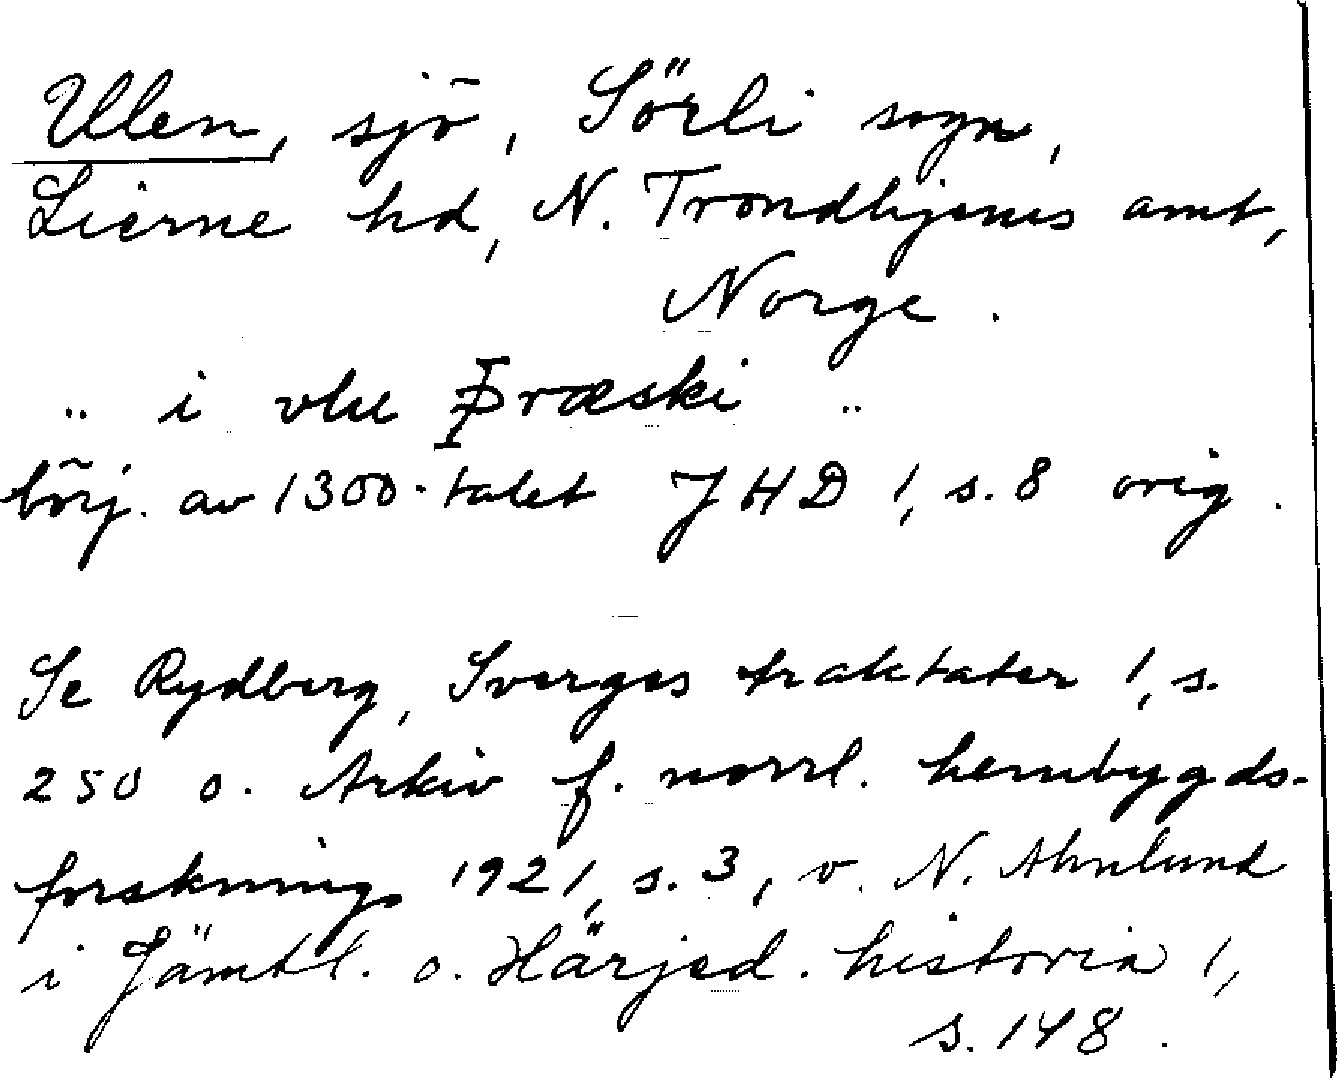 Ulen, sjö, Sörli sogn,
Lierne hd, N. Trondhjems amt,
Norge.
" i vlu Þræski "
börj. av 1300-talet JHD 1, s. 8 orig.
Se Rydberg, Sverges traktater 1, s.
250 o. Arkiv f. norrl. hembygds-
forskning 1921, s. 3, v. N. Ahnlund
i Jämtl. o. Härjed. historia 1,
s. 148.